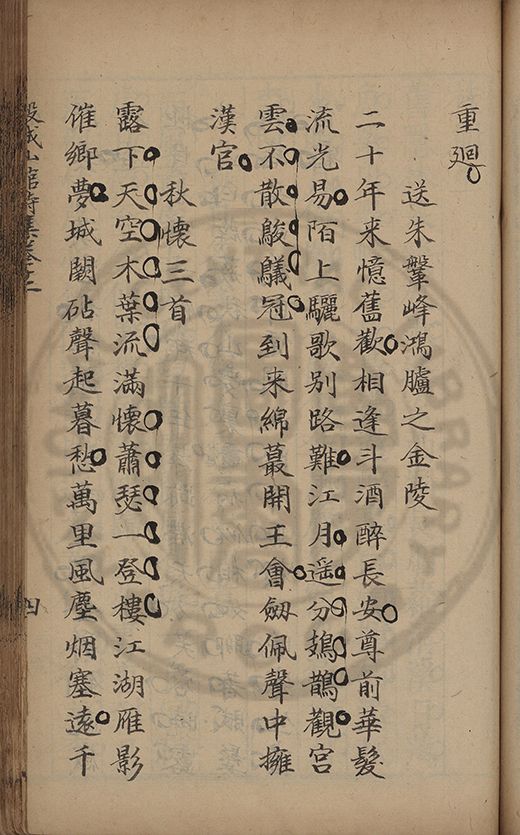 重廻
送朱鞶峰鴻臚之金陵
二十年来憶舊歡相逢斗酒醉長安尊前華髮
流光易陌上驪歌別路難江月遥分鳷鵲觀宮
雲不散鵔鸃冠到来綿蕞開王會劔佩聲中擁
漢官
秋懐三首
露下天空木葉流滿懐蕭瑟一登樓江湖雁影
催鄉夢城闕砧聲起暮愁萬里風塵烟塞遠千
穀城山館詩集卷之二
四